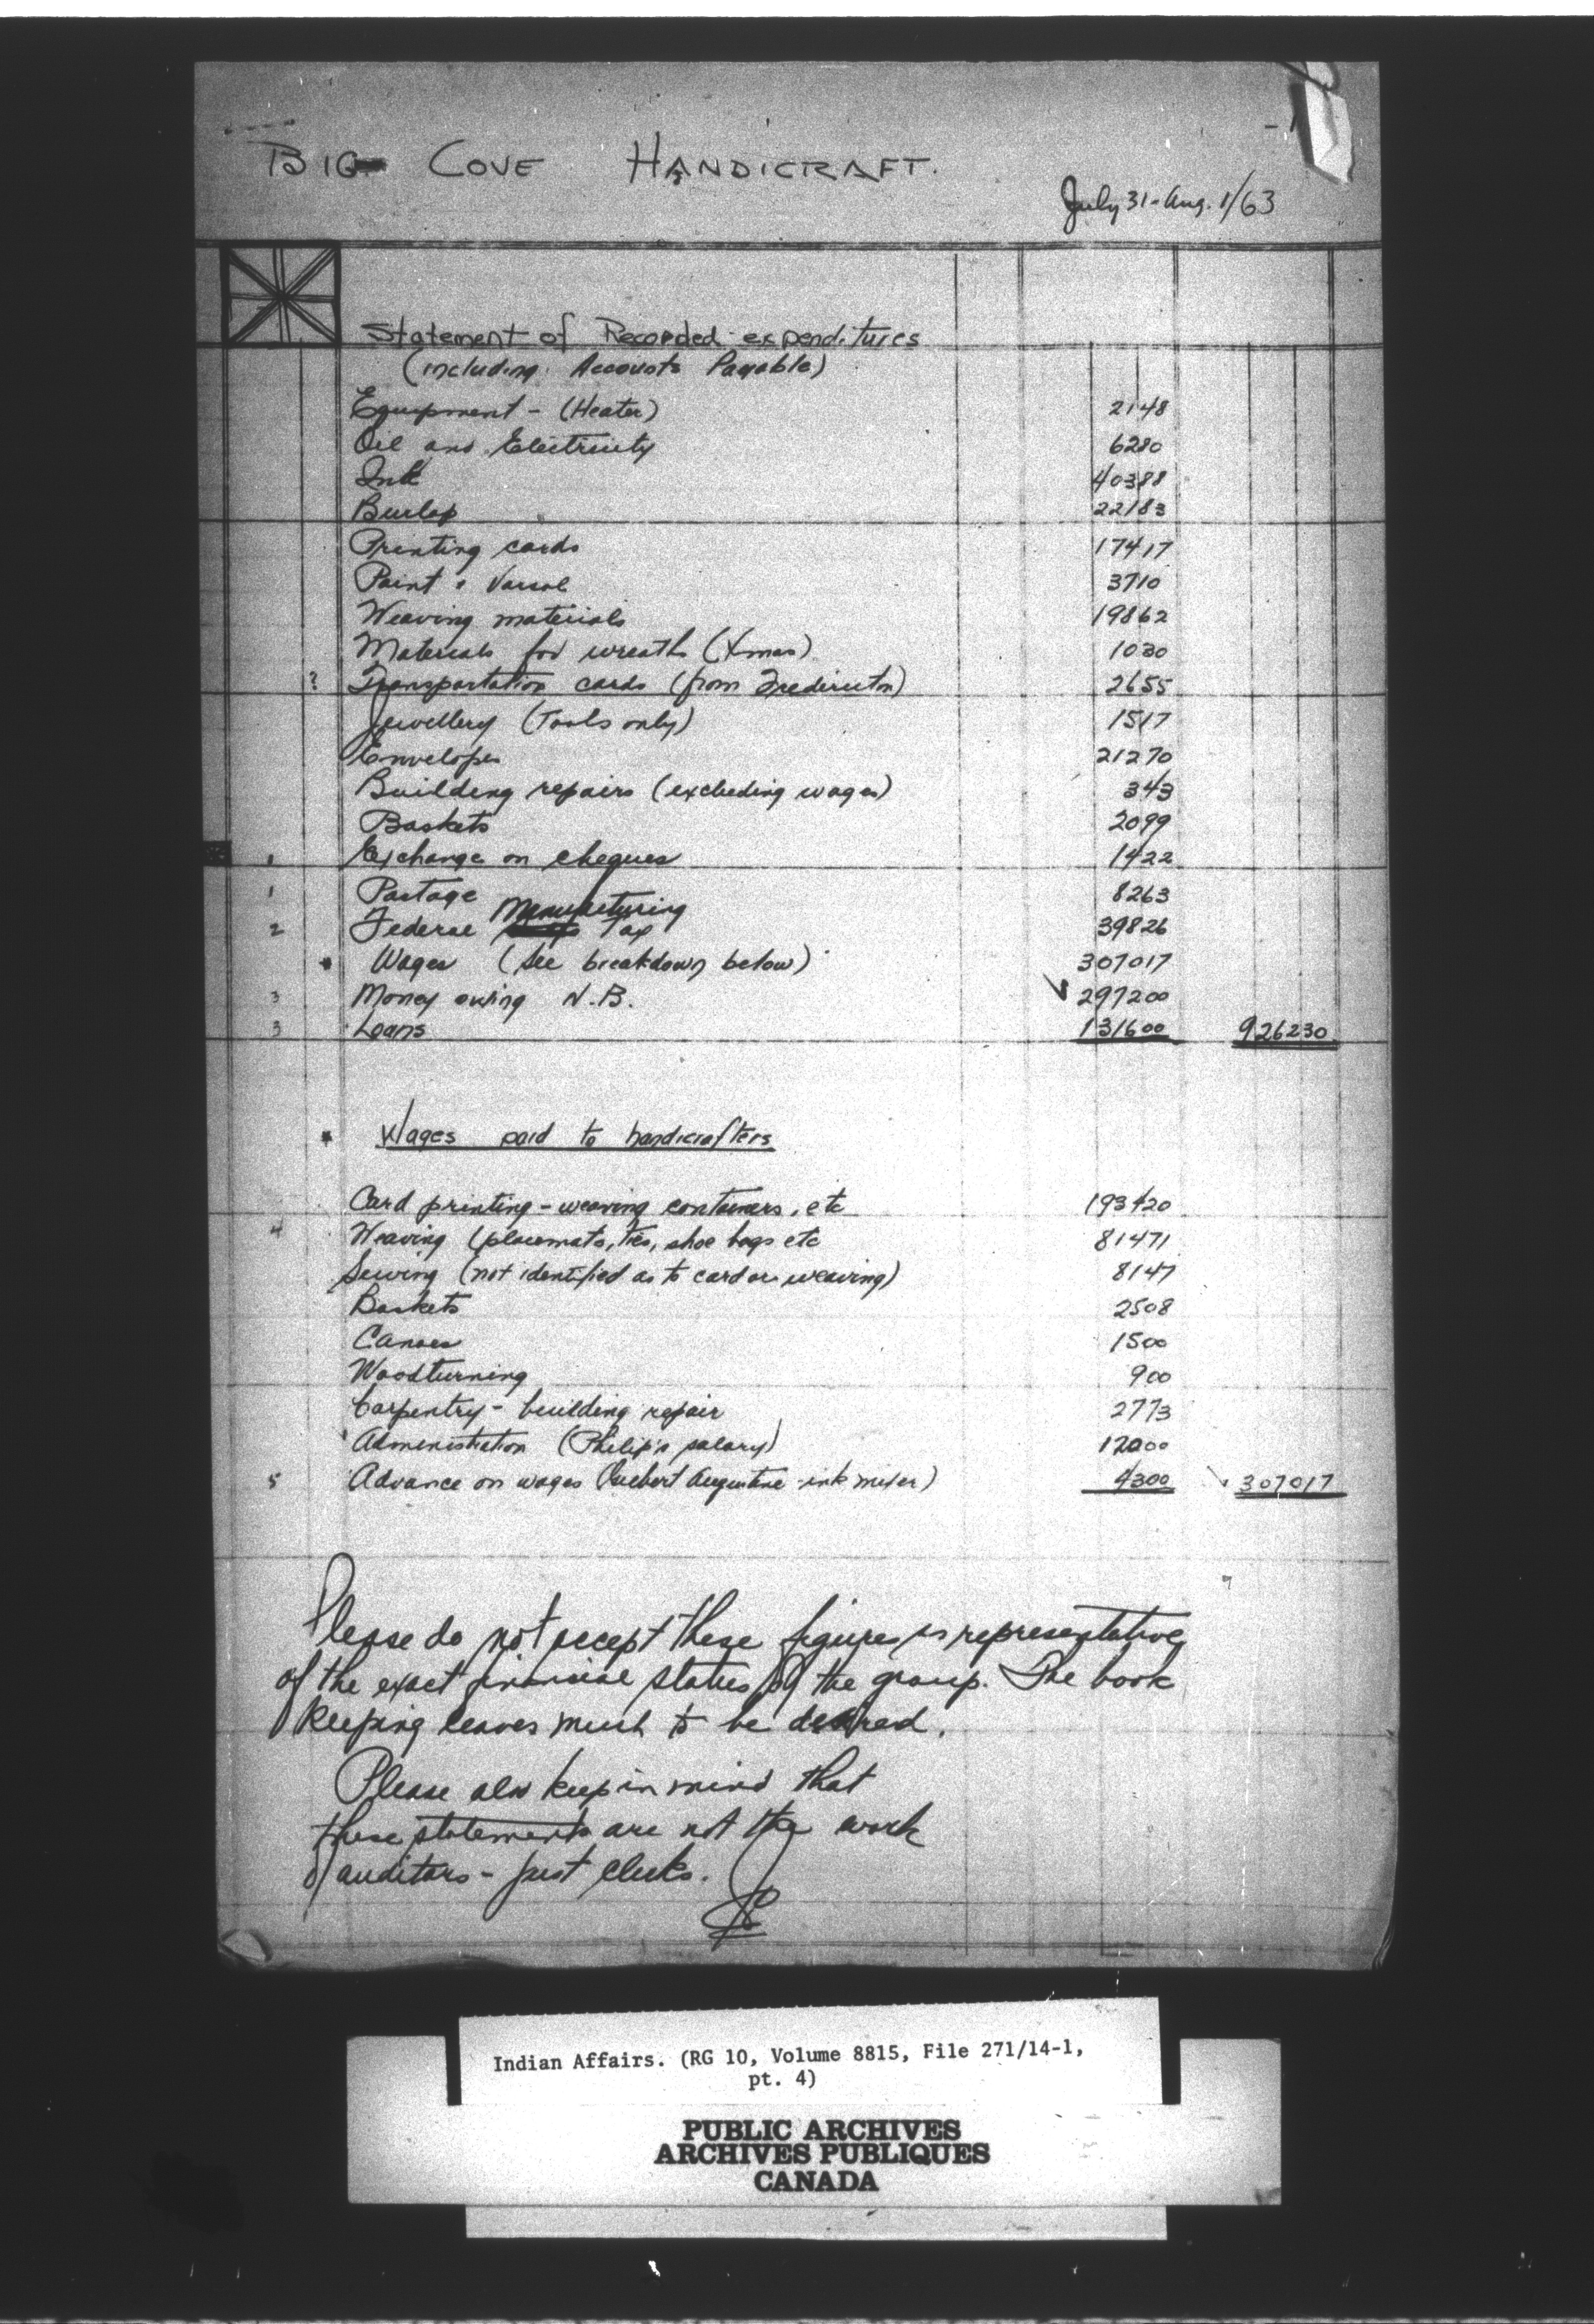 BIG COVE HANDICRAFT.
July 31 - Aug. 1/63
Statement of Recorded expenditures
(including Accounts Payable)
Equipment - (Heater) 2148
Oil and Electricity 6280
Ink 40388
Burlap 22183
Printing cards 17417
Paint & Varsol 3710
Weaving materials 19862
Materials for wreaths (Xmas) 1030
? Transportation cards (from Fredericton) 2655
Jewellery (Tools only) 1517
Envelopes 21270
Building repairs (excluding wages) 343
Baskets 2099
1 Exchange on cheques 1422
1 Postage 8263
2 Federal Manufacturing Tax 39826
* Wages (See breakdown below) 307017
3 Money owing N.B. ✓ 297200
3 Loans 131600 926230
* Wages paid to handicrafters
Card printing - weaving containers, etc 193420
4 Weaving (placemats, ties, shoe bags etc 81471
Sewing (not identified as to card or weaving) 8147
Baskets 2508
Canoes 1500
Woodturning 900
Carpentry - building repair 2773
Administration (Philip's salary) 12000
5 Advance on wages ( Augustine - ink mixer) 4300 307017
Please do not accept these figures as representative
of the exact financial status of the group. The book
keeping leaves much to be desired.
Please also keep in mind that
these statements are not the work
of auditors - just clerks.
Indian Affairs. (RG 10, Volume 8815, File 271/14-1,
pt. 4)
PUBLIC ARCHIVES
ARCHIVES PUBLIQUES
CANADA